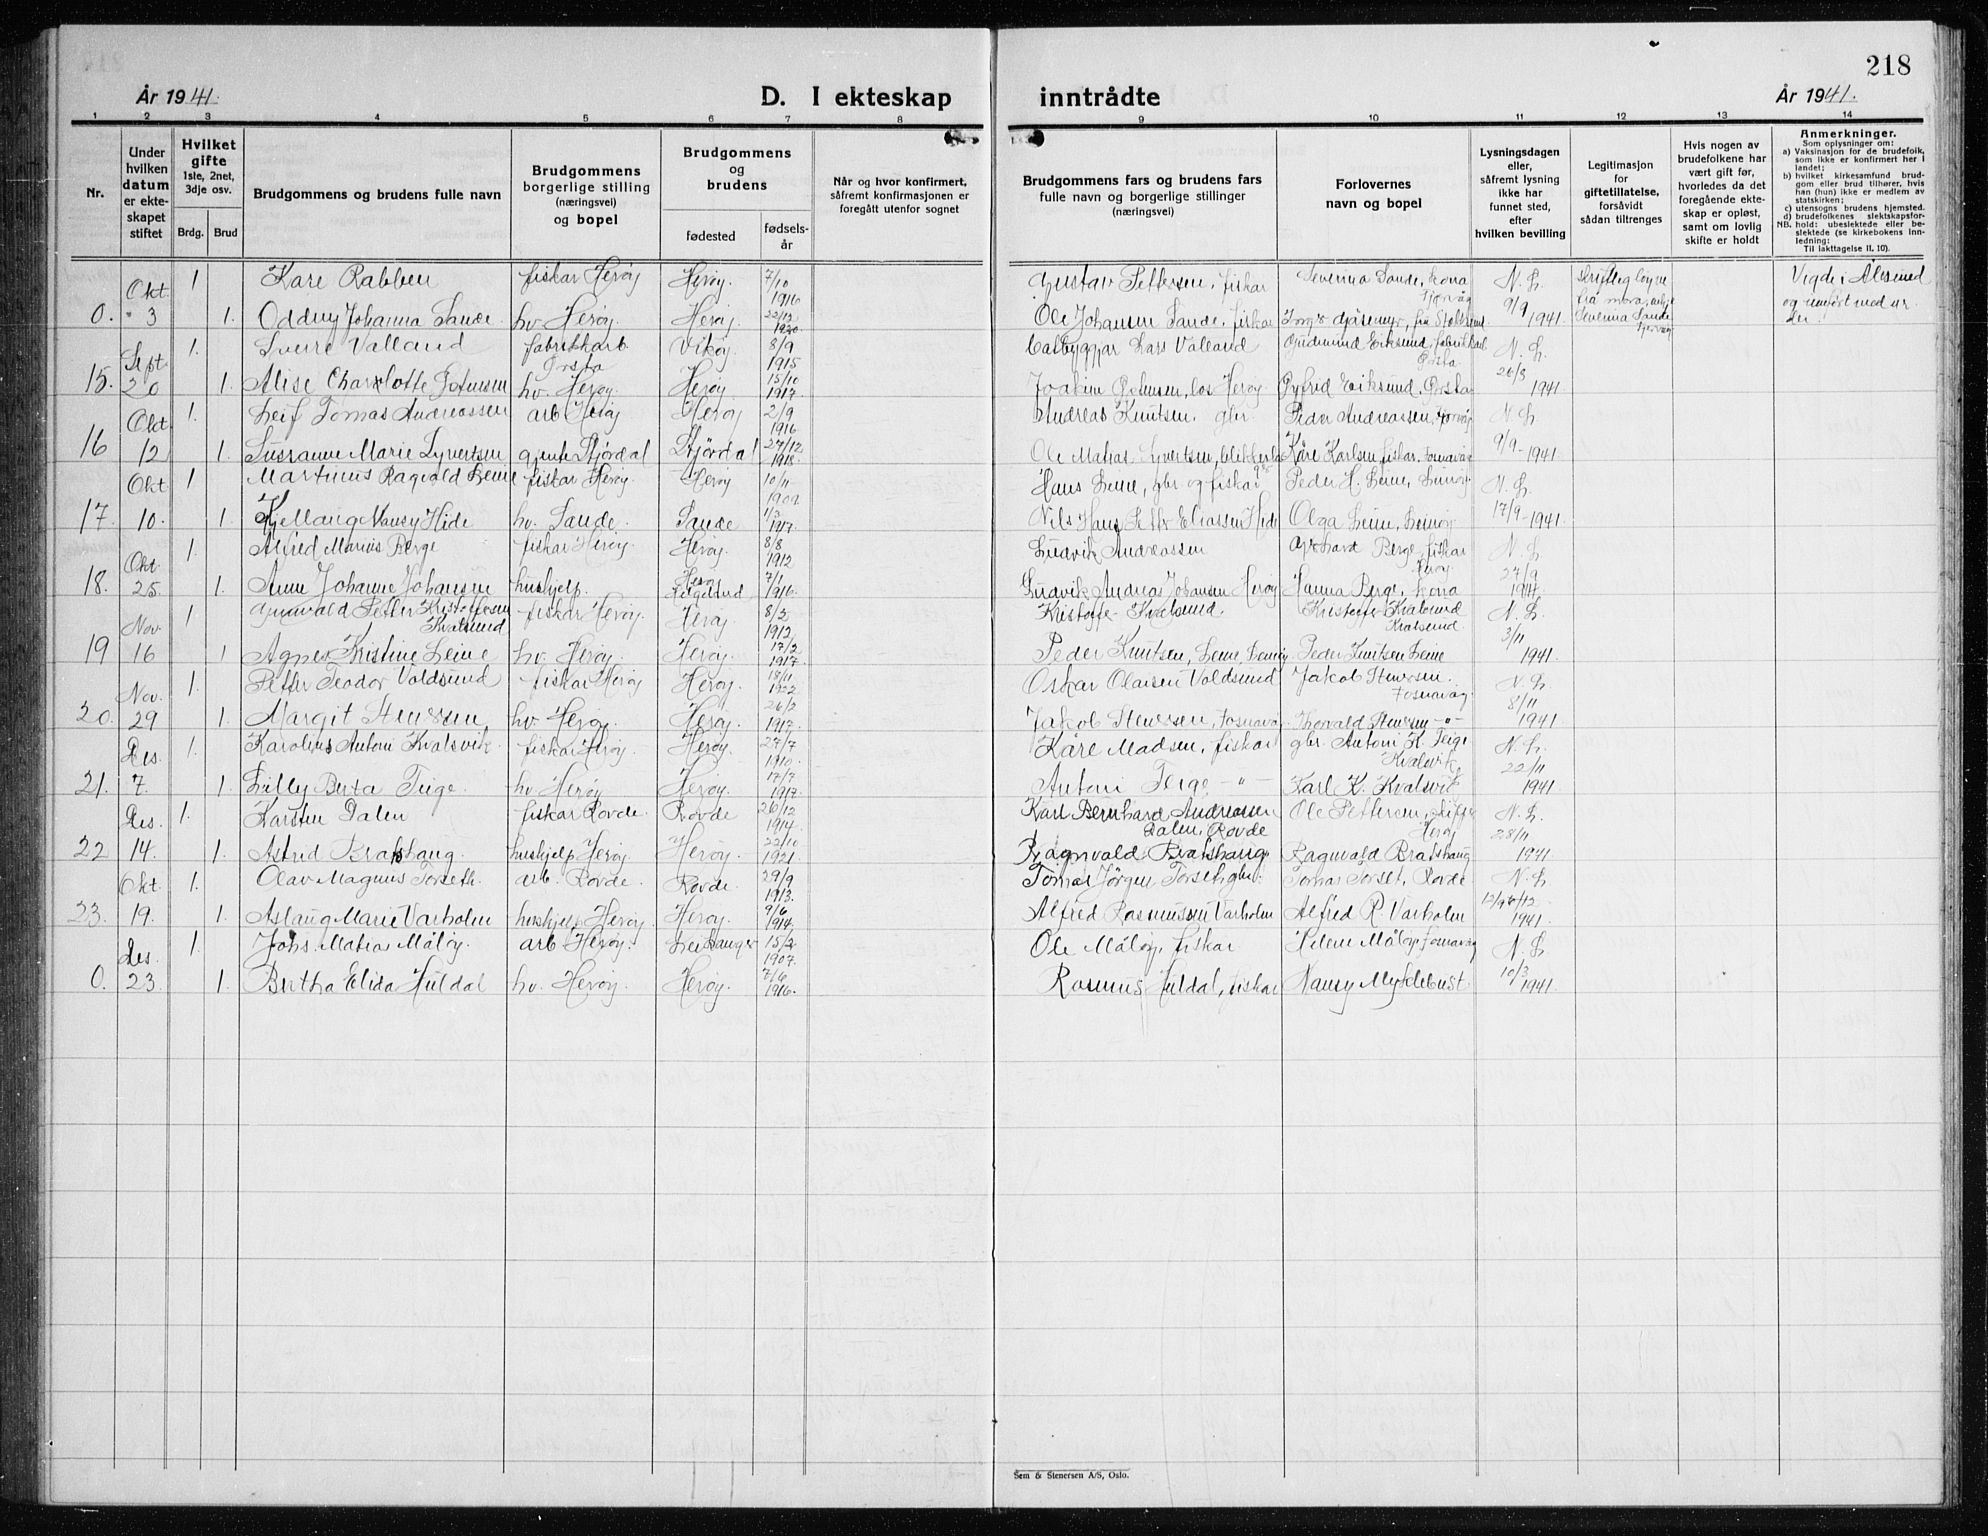 218
År 1941.
D. I ekteskap
inntrådte
År 1941.
1 2 3 4 5 6 7 8 9 10 11 12 13 14
Nr.
Under hvilken datum er ekteskapet stiftet
Hvilket gifte 1ste, 2net, 3dje osv.
Brdg. Brud
Brudgommens og brudens fulle navn
Brudgommens borgerlige stilling (næringsvei) og bopel
Brudgommens og brudens
fødested
fødselsår
Når og hvor konfirmert, såfremt konfirmasjonen er foregått utenfor sognet
Brudgommens fars og brudens fars fulle navn og borgerlige stillinger (næringsvei)
Forlovernes navn og bopel
Lysningsdagen eller, såfremt lysning ikke har funnet sted, efter hvilken bevilling
Legitimasjon for giftetillatelse, forsåvidt sådan tiltrenges
Hvis nogen av brudefolkene har vært gift før, hvorledes da det foregående ekteskap er opløst, samt om lovlig skifte er holdt
Anmerkninger.
Som oplysninger om:
a) Vaksinasjon for de brudefolk, som ikke er konfirmert her i landet;
b) hvilket kirkesamfund brudgom eller brud tilhører, hvis han (hun) ikke er medlem av statskirken;
c) utensogns brudens hjemsted.
d) brudefolkenes slektskapsforhold: ubeslektede eller beslektede (se kirkebokens innledning:
NB.
Til iakttagelse II. 10).
Okt. 1. Kåre Rabben fiskar Herøy Herøy. 7/10 1916 Gustav Pettersen, fiskar Severina Sande, kona N. L. Vigde i Ålesund
0. " 3 1. Oddny Johanna Sande. hv. Herøy. Herøy 22/12 1920 Ole Johansen Sande, fiskar 9/9 1941. frå mora, enkje Severina Sande
Sept. 1. Sverre Valland fabrikkarb. Ørsta Vikøy. 8/9 1915 Båtbyggjar Lars Valland Gudmund Eiksund, fabrikkarb. Ørsta N. L.
15. 20 1. Alise Charlotte Joensen hv. Herøy. Herøy 15/10 1917. Joakim Joensen, los Herøy Eiksund, Ørsta 26/8 1941.
Okt 1. Leif Tomas Andreassen arb Herøy Herøy 2/9 1916 Andreas Knutsen, gbr. Peder Andreassen, N. L.
16 12 1. Susanne Marie Syvertsen Stjørdal Stjørdal 27/12 1918. Ole Matias Syvertsen, Kåre Karlsen, fiskar, Fosnavåg 9/9-1941
Okt 1 Martinus Ragvald Leine fiskar Herøy. Herøy 10/11 Hans Leine, gbr. og fiskar Peder H. Leine, N. L.
17. 10. 1. Kjellaug Nansy Hide hv. Sande. Sande 1/3 1917. Nils Hans Petter Eliassen Hide Olga Leine, 17/9-1941
Okt. 1. Alfred Marius Berge fiskar Herøy. Herøy. 8/8 1912 Ludvik Andreassen Berge, fiskar Herøy N. L.
18. 25. 1. Anne Johanne Johansen hushjelp. Herøy 7/1 1916. Ludvik Andreas Johansen Herøy Hanna Berge, kona 27/9 1941.
Nov. 1 Petter Kristoffersen Kvalsund fiskar Herøy. Herøy. 8/2 1912 Kristoffer Kvalsund Kristoffer Kvalsund Kvalsund. N. L.
19 16 1 Agnes Kristine Leine hv. Herøy. Herøy. 17/2 1917. Peder Knutsen, Leine, Peder Knutsen Leine 3/11 1941.
Nov. 1. Petter Teodor Voldsund fiskar Herøy Herøy. 18/11 1922 Oskar Olaisen Voldsund Jakob Stenersen. Fosnavåg N. L.
20. 29 1. Margit Stenersen hv. Herøy. Herøy. 26/2 1917. Jakob Stenersen, Fosnavåg Thorvald Stenersen -"- 8/11 1941
Des. 1. Karolius Antoni Kvalsvik. fiskar Herøy. Herøy. 27/7 1910. Kåre Madsen, fiskar gbr. Antoni K. Teige Kvalsvik. N. L.
21. 7. 1 Lilly Berta Teige. hv Herøy Herøy. 17/7 1917. Antoni Teige -"- Karl K. Kvalsvik 22/11 1941
Des. 1. Karsten Dalen fiskar Rovde. Rovde 26/12 1914. Karl Bernhard Andreassen Dalen, Rovde Ole Pettersen, Herøy N. L.
22 14. 1. Astrid Brakshaug. hushjelp Herøy. Herøy. 22/10 1921. Ragnvald Brakshaug. Ragnvald Brakshaug 28/11 1941
Okt. 1. Olav Magnus Torseth. arb. Rovde. Rovde. 29/9 1913. Tomas Jørgen Torseth gbr. Tomas Torset, Rovde. N. L.
23. 19. 1. Aslaug Marie Varholm hushjelp Herøy. Herøy. 9/6 1914. Alfred Rasmussen Varholm Alfred R. Varholm 1941.
Des. 1. Johs. Matias Måløy. arb Herøy. 15/2 1907. Ole Måløy, fiskar Måløy Fosnavåg N. L.
0. 23. 1. Bertha Elida Huldal hv. Herøy. Herøy. 7/6 1916. Rasmus Huldal, fiskar Nansy Myklebust 10/3 1941.
Sem & Stenersen A/S, Oslo.